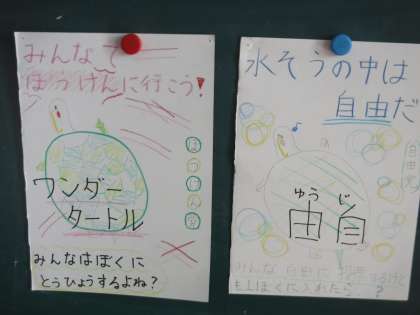 みんなで
ぼうけんに行こう!
ぼうけん
ワンダー
タートル
みんなはぼくに
とうひょうするよね?
水そうの中は
自由だ
ゆう じ
由自
自由
みんな 自由に
もしぼくに入れたら ?